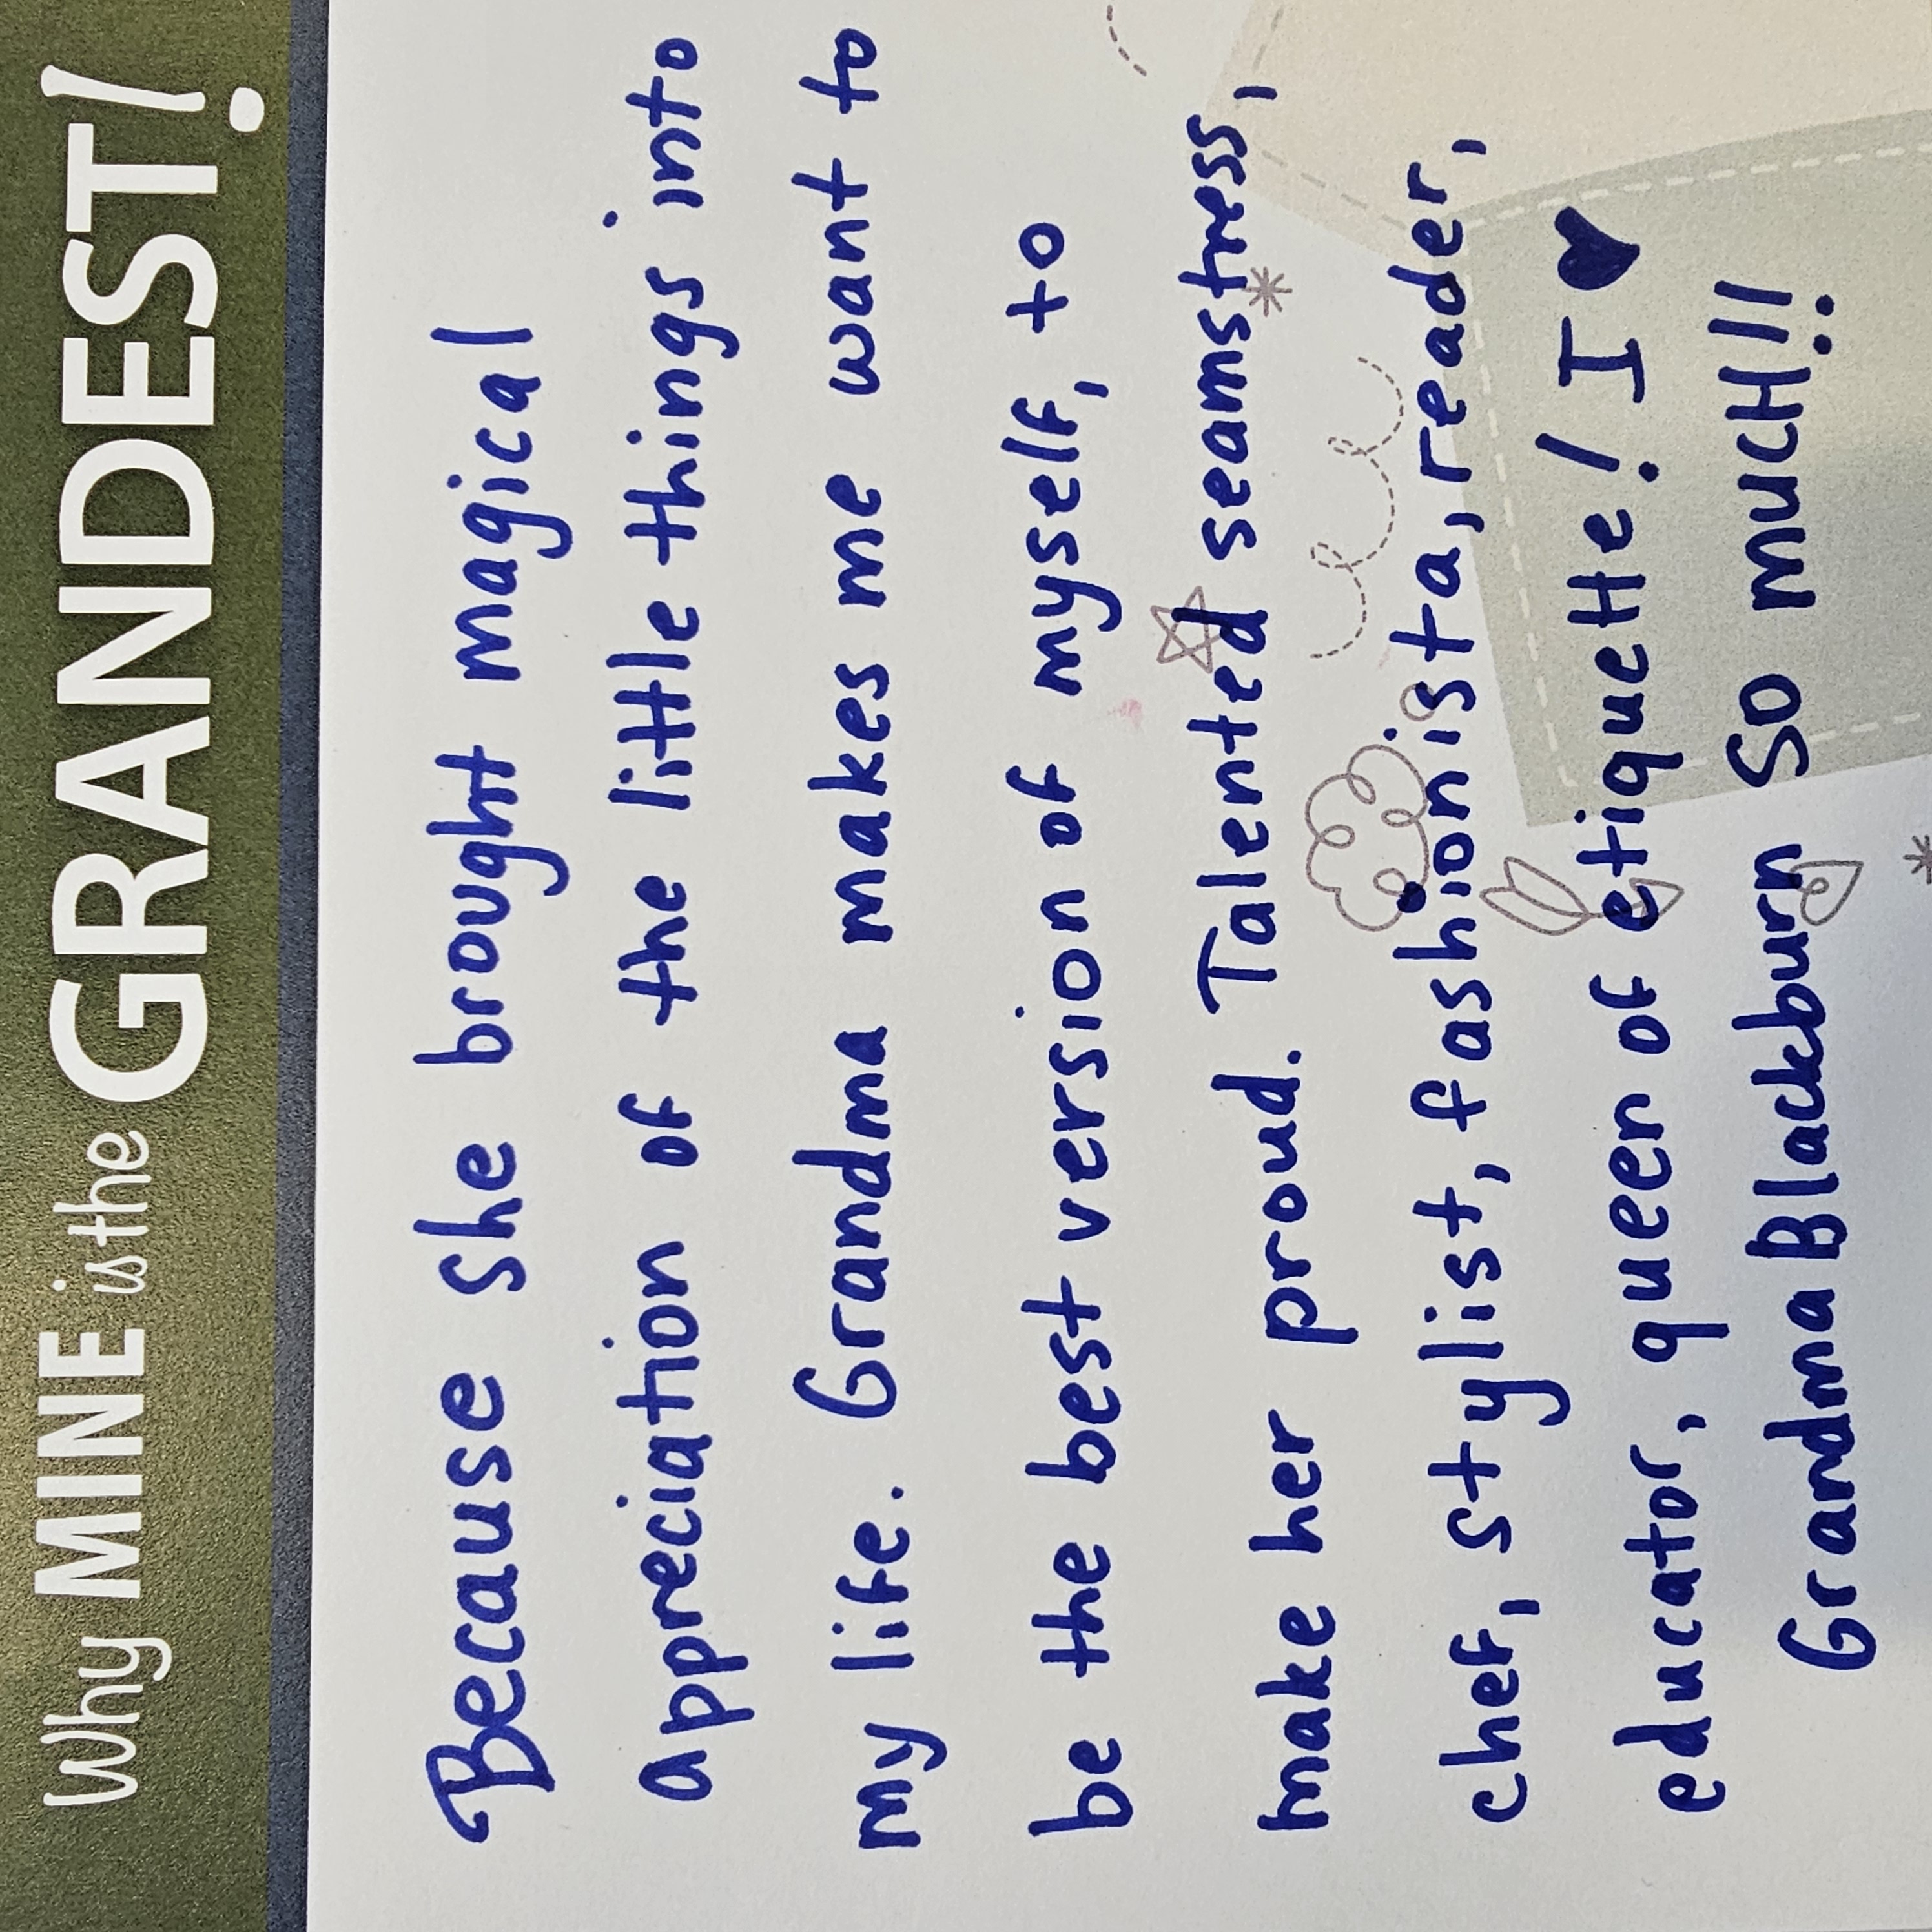 Why MINE is the GRANDEST!
Because she brought magical
appreciation of the little things into
my life. Grandma makes me want to
be the best version of myself, to
make her proud. Talented seamstress,
chef, stylist, fashionista, reader,
educator, queen of etiquette! I ♥
Grandma Blackburn SO MUCH!!